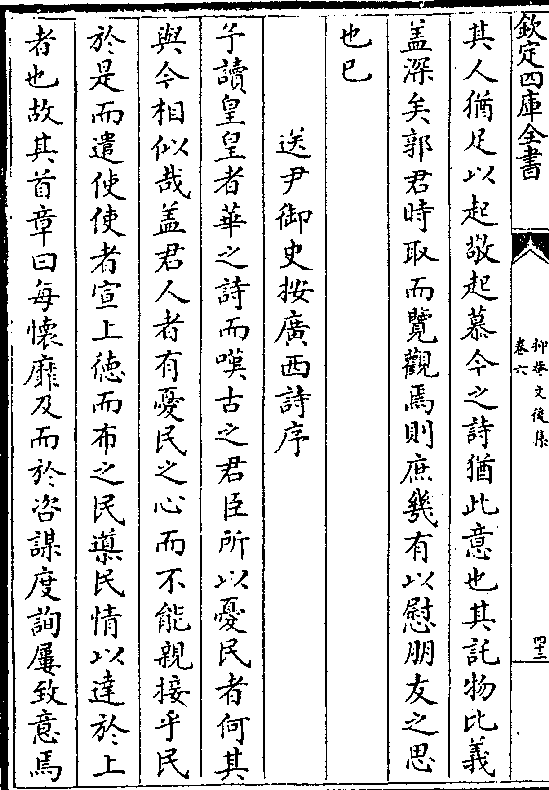 欽定四庫全書
抑菴文後集
卷六
四十三
其人猶足以起敬起慕今之詩猶此意也其託物比義
盖深矣郭君時取而覽觀焉則庶幾有以慰朋友之思
也已
送尹御史按廣西詩序
予讀皇皇者華之詩而嘆古之君臣所以憂民者何其
與今相似哉盖君人者有憂民之心而不能親接乎民
於是而遣使使者宣上徳而布之民導民情以達於上
者也故其首章曰每懷靡及而於咨謀度詢屢致意焉